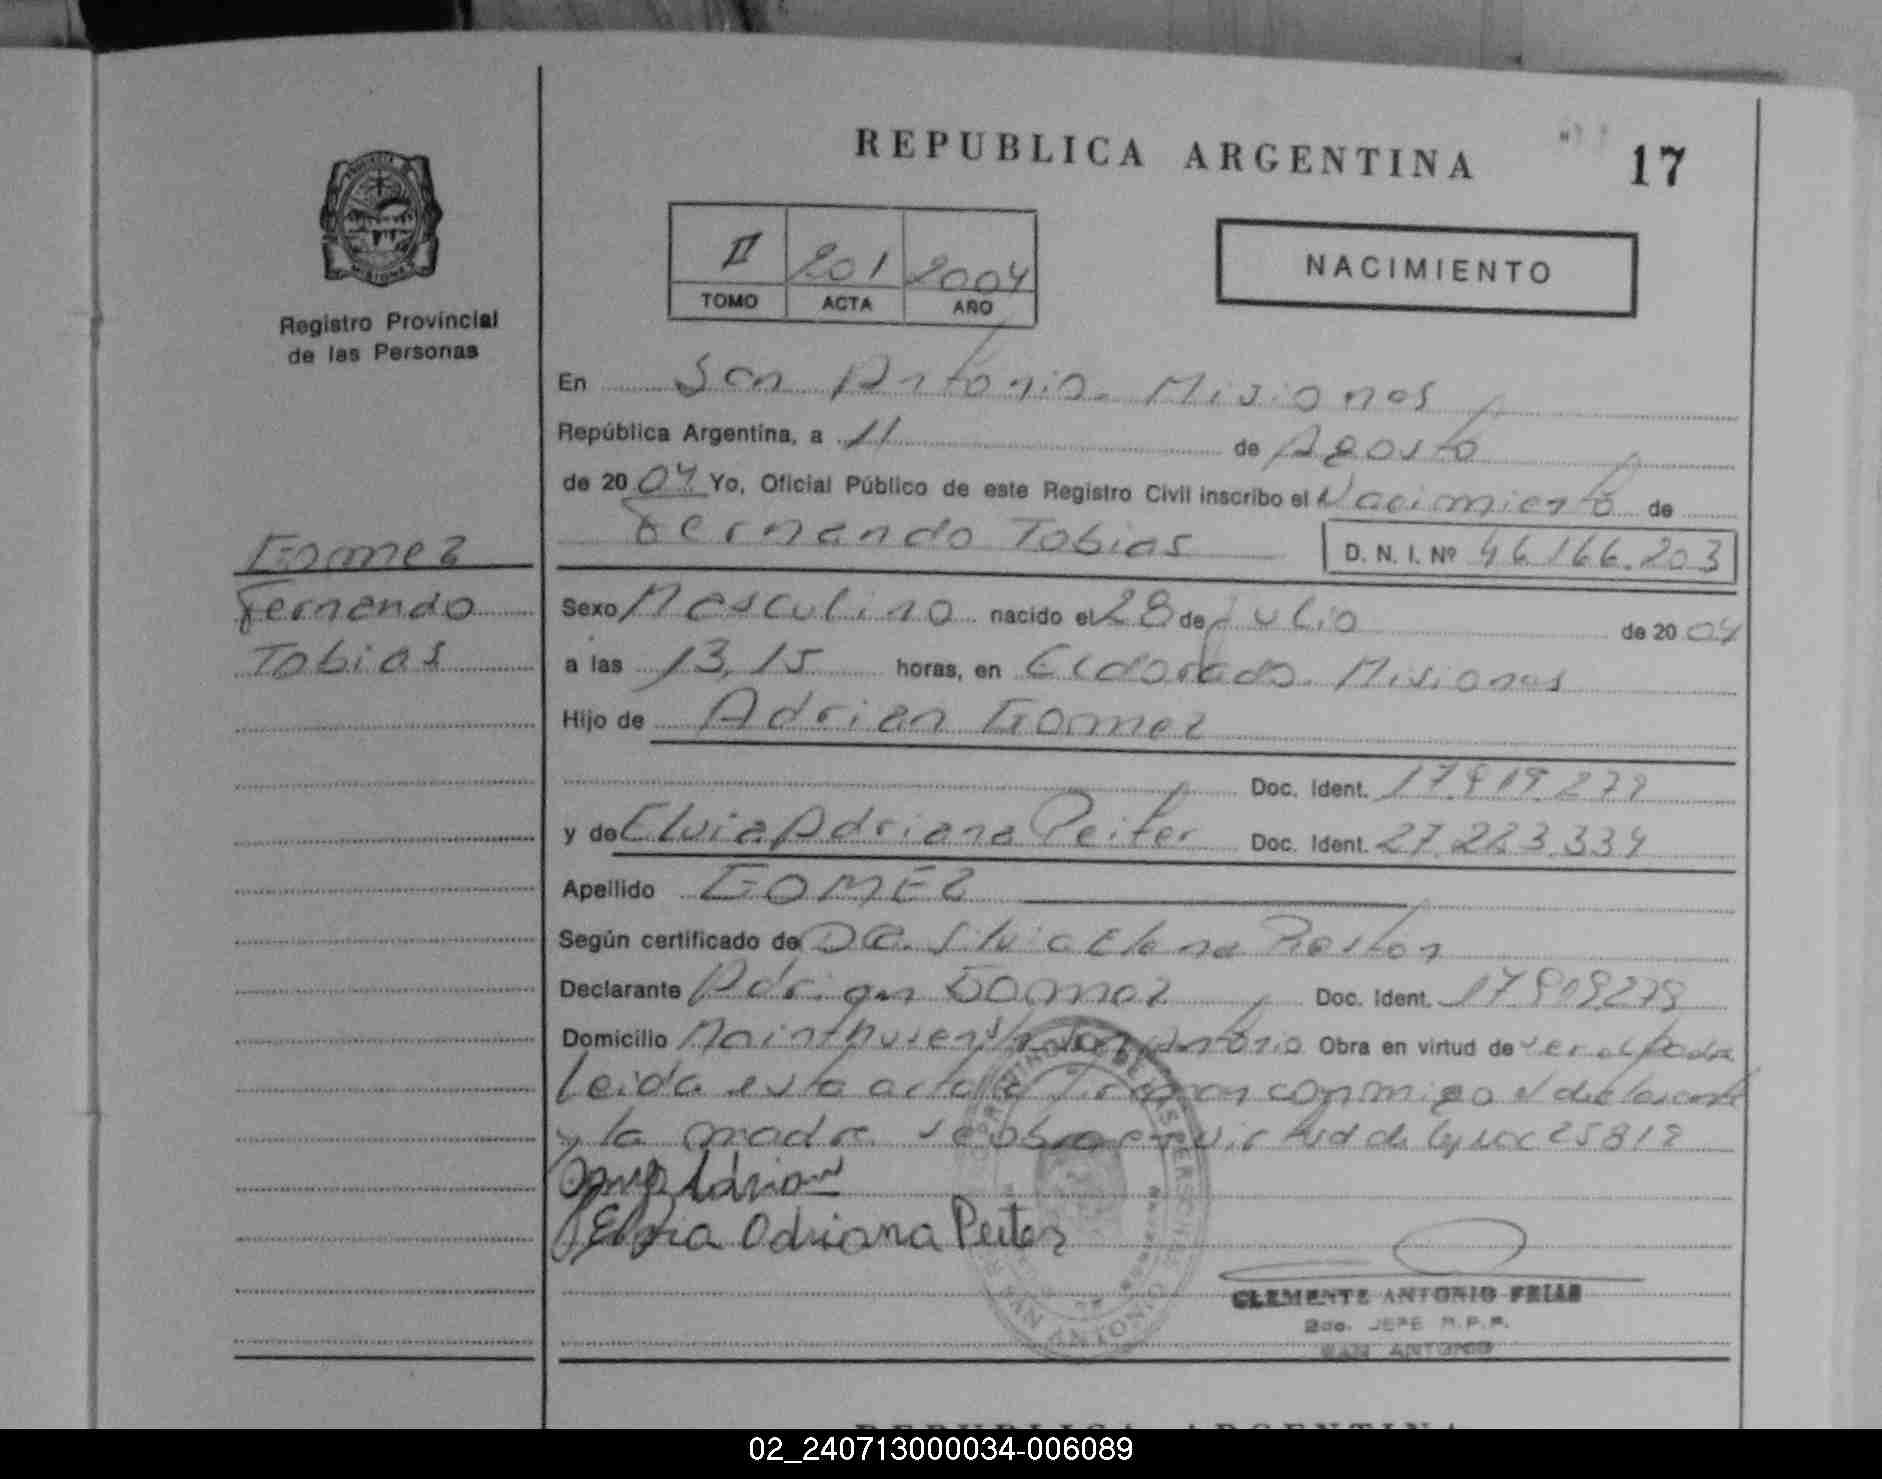 REPUBLICA ARGENTINA
17
II 201 2004
TOMO ACTA AÑO
NACIMIENTO
Registro Provincial
de las Personas
En San Antonio. Misiones
República Argentina, a 11 de Agosto
de 2004 Yo, Oficial Público de este Registro Civil inscribo el Nacimiento de
Fernando Tobias D. N. I. Nº 46.166.203
Gomez
Fernando
Tobias
Sexo Masculino nacido el 28 de Julio de 2004
a las 13,15 horas, en Eldorado. Misiones
Hijo de Adrian Gomez
Doc. Ident.
y de Elvia Adriana Peiter Doc. Ident. 27.223.334
Apellido GOMEZ
Según certificado de DRA. Silvia Elena
Declarante Adrian Gomez Doc. Ident.
Domicilio San Antonio Obra en virtud de ser el padre
Leida esta acta la firman conmigo el declarante
y la madre se obra en virtud de ley nac 25819
Gomez Adrian
Elvia Adriana Peiter
CLEMENTE ANTONIO FRIAS
2do. JEFE R.P.P.
SAN ANTONIO
REPUBLICA ARGENTINA
02_240713000034-006089